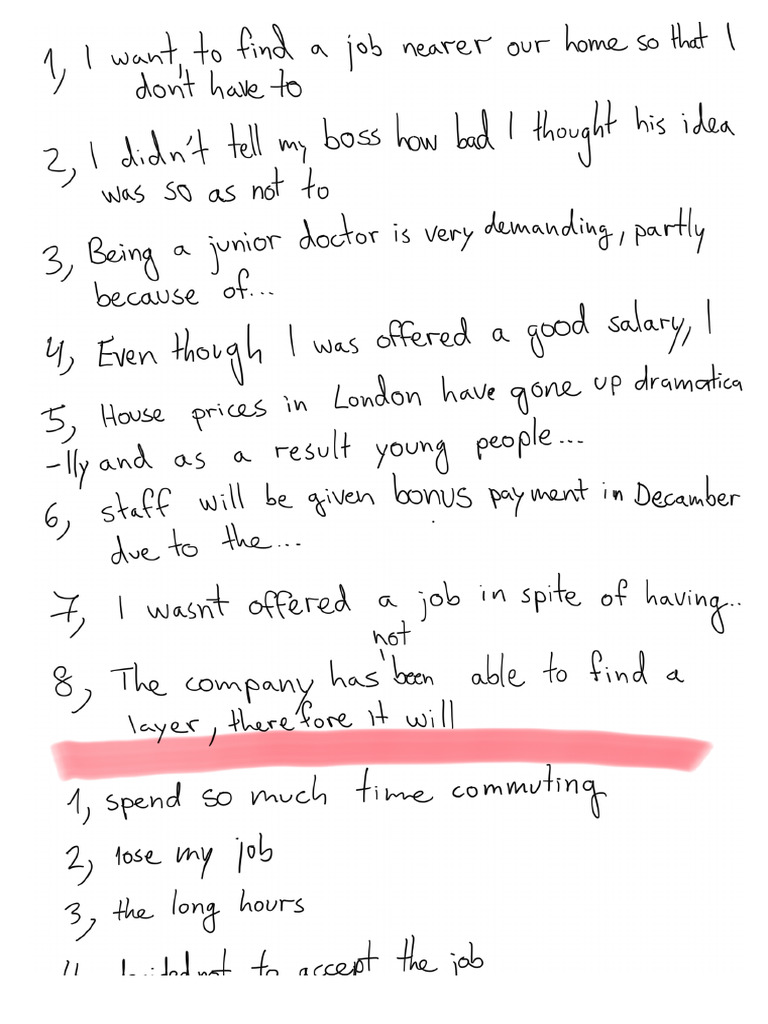 1, I want to find a job nearer our home so that I
don't have to
2, I didn't tell my boss how bad I thought his idea
was so as not to
3, Being a junior doctor is very demanding, partly
because of...
4, Even though I was offered a good salary, I
5, House prices in London have gone up dramatica
-lly and as a result young people...
6, staff will be given bonus payment in Decamber
due to the...
7, I wasnt offered a job in spite of having..
not
8, The company has been able to find a
layer, therefore it will
1, spend so much time commuting
2, lose my job
3, the long hours
to accept the job